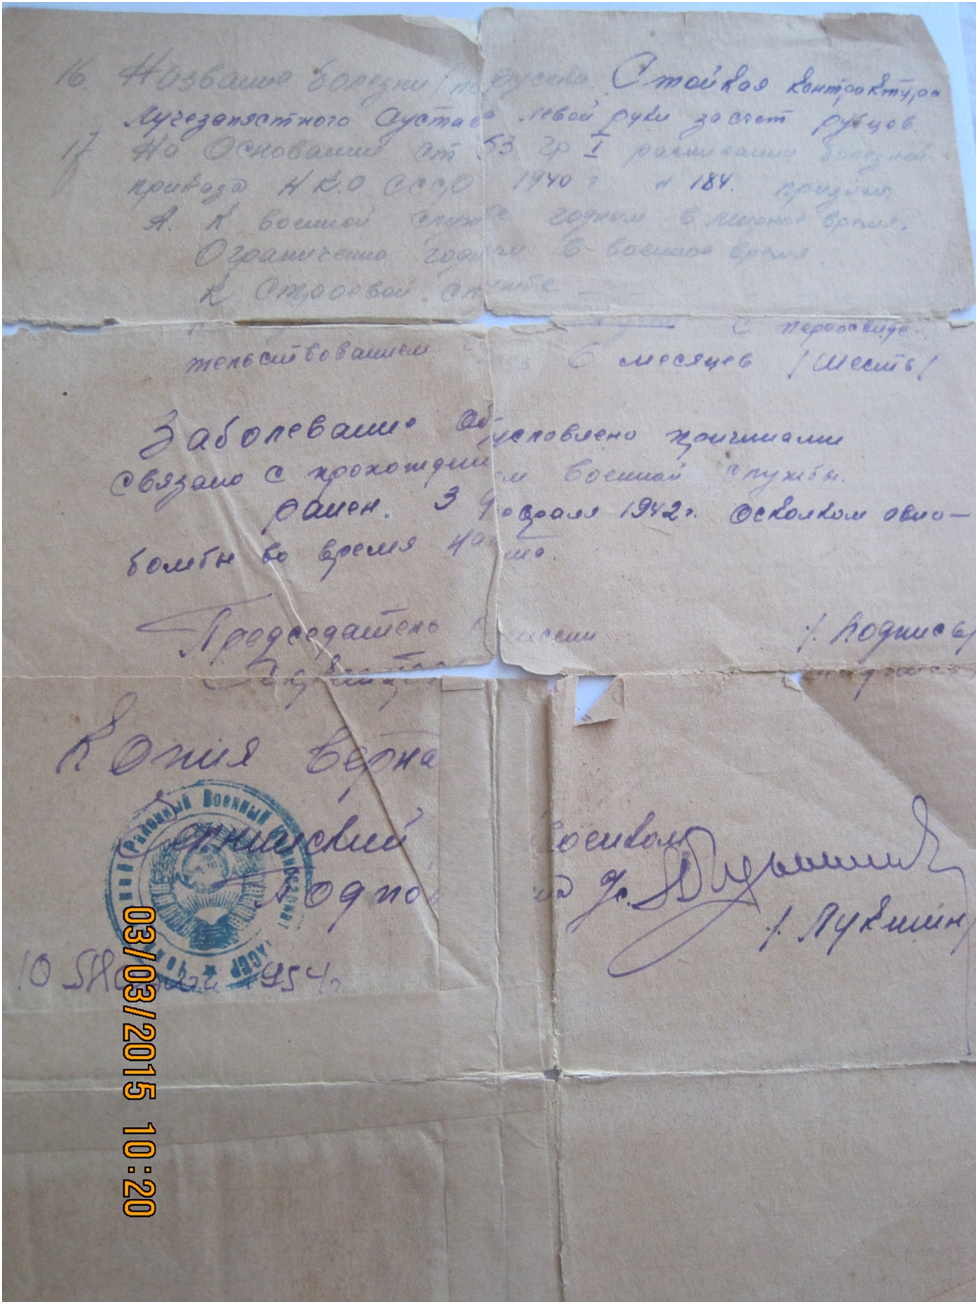 16 Название болезни (по русски) Стойкая контрактура
лучезапястного сустава левой руки за счет рубцов
17 На Основании ст 53 гр I расписания болезней
приказа НКО СССР 1940 г N 184. признан
А. К военной службе годным в мирное время.
Ограничено годным в военное время
к строевой службе
с переосвиде-
тельствованием 6 месяцев / Шесть /
Заболевание обусловлено причинами
связано с прохождением военной службы.
ранен. 3 февраля 1942 г. осколком авиа-
бомбы во время
Председатель комиссии /. Подпись /
Копия верна
Районный Военный
военком
Подпо
/. Лукшин
10 1954 г
03/03/2015 10:20